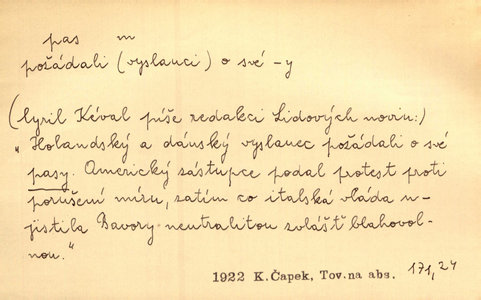 pas m
požádali (vyslanci) o své -y
(Cyril Kéval píše redakci Lidových novin:)
"Holandský a dánský vyslanec požádali o své
pasy. Americký zástupce podal protest proti
porušení míru, zatím co italská vláda u-
jistila Bavory neutralitou zvlášť blahovol-
nou."
1922 K.Čapek, Tov.na abs. 171,24